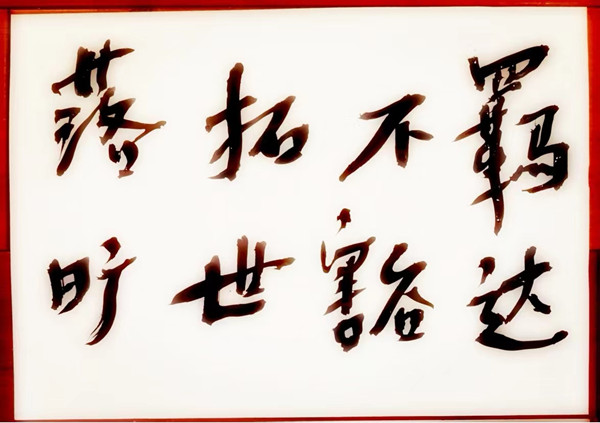 落拓不羁
旷世豁达